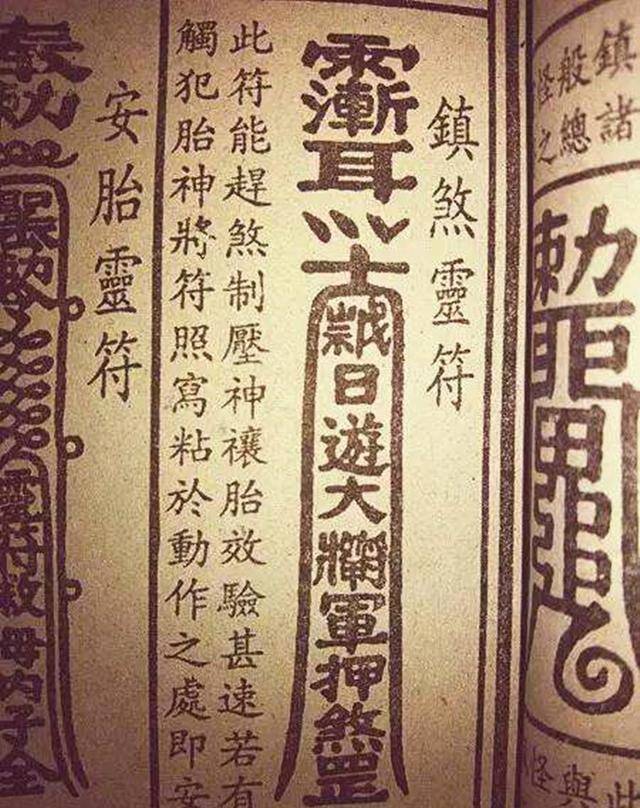 鎮諸
般總
怪之
勅
此
與
怪
鎮煞靈符
漸耳
日遊大將軍押煞罡
此符能趕煞制壓神禳胎效驗甚速若有
觸犯胎神將符照寫粘於動作之處即安
安胎靈符
奉勅
靈符救母內子全